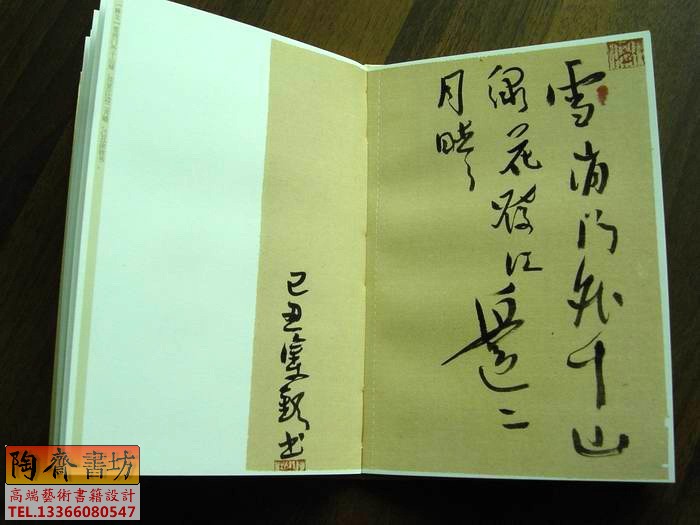 雪消门外千山
绿花發江邊二
月晴
己丑 书
陶齋書坊
高端藝術書籍設計
TEL.13366080547